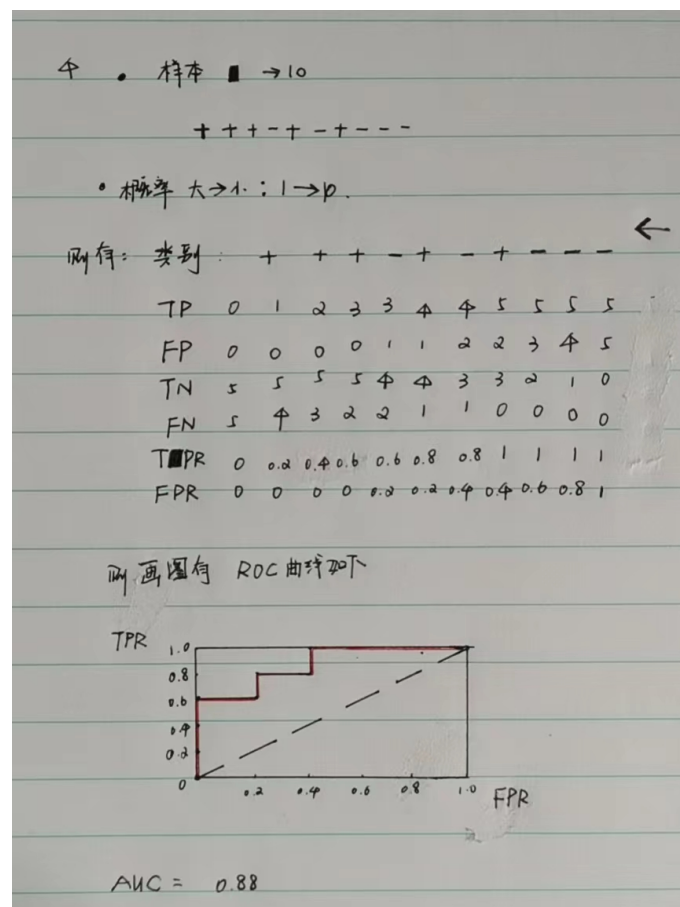 4 . 样本 →10
+ + + - + - + - - -
• 概率 大→小：1→10.
则有： 类别： + + + - + - + - - -
TP 0 1 2 3 3 4 4 5 5 5 5
FP 0 0 0 0 1 1 2 2 3 4 5
TN 5 5 5 5 4 4 3 3 2 1 0
FN 5 4 3 2 2 1 1 0 0 0 0
TPR 0 0.2 0.4 0.6 0.6 0.8 0.8 1 1 1 1
FPR 0 0 0 0 0.2 0.2 0.4 0.4 0.6 0.8 1
则画图有 ROC曲线如下
TPR
1.0
0.8
0.6
0.4
0.2
0
0.2 0.4 0.6 0.8 1.0
FPR
AUC = 0.88